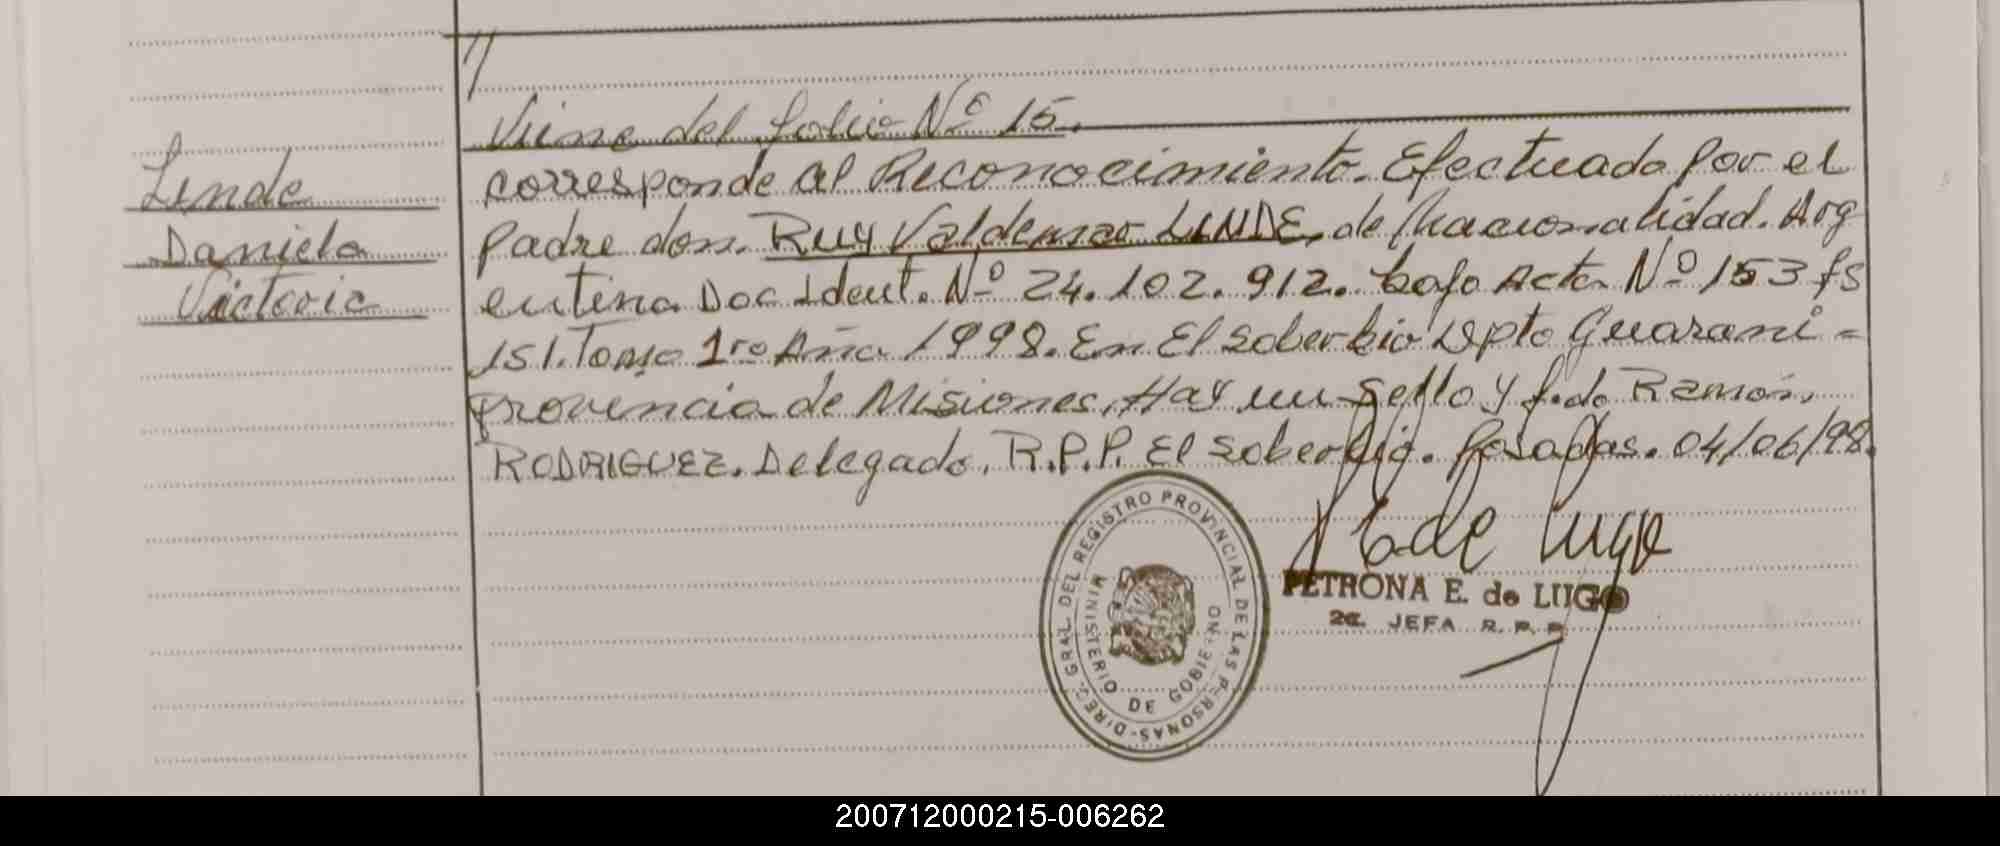 Viene del folio Nº 15.
Linde
Daniela
Victoria
corresponde al Reconocimiento. Efectuado Por el
Padre don. Ruy Valdemar LINDE, de Nacionalidad. Arg
entina Doc Ident. Nº 24.102.912. bajo Acta Nº 153 fs
151. Tomo 1ro Año 1998. En El Soberbio Dpto Guarani -
Provincia de Misiones. Hay un Sello y f.do Ramón.
RODRIGUEZ. Delegado. R.P.P. El Soberbio. Posadas. 04/06/98.
E de Lugo
PETRONA E. de LUGO
2a. JEFA R. P. P.
DIREC. GRAL. DEL REGISTRO PROVINCIAL DE LAS PERSONAS-
MINISTERIO DE GOBIERNO
200712000215-006262